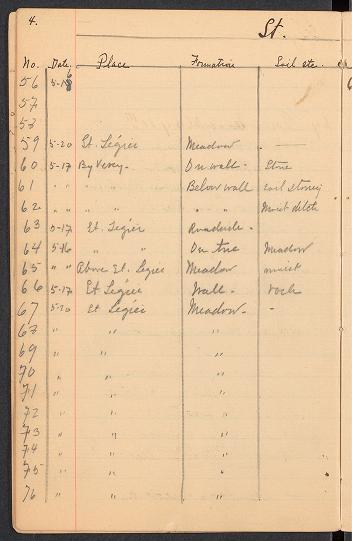 4.
St.
No. Date. Place Formation Soil etc.
56 5-18
57
58
59 5-20 St. Légier Meadow . —
60 5-17 By Vevey - On wall - Stone
61 " " " " Below wall soil stony
62 " " " " " " Moist ditch
63 5-17 St. Légier Roadside -
64 5-16 " " On tree Meadow
65 " " Above St. Legier Meadow moist
66 5-17 St Légier Wall - rock
67 5-20 St Légier Meadow - -
68 " " "
69 " " "
70 " " "
71 " " "
72 " " "
73 " " "
74 " " "
75 " " "
76 " " "